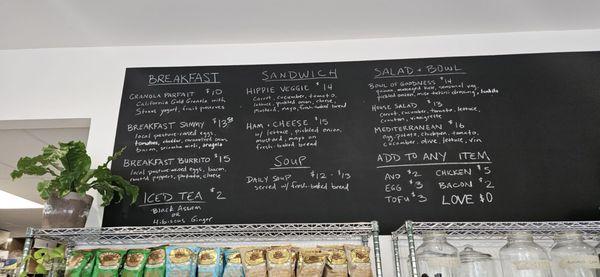 BREAKFAST
GRANOLA PARFAIT $10
California Gold Granola with
Straus yogurt, fruit preserves
BREAKFAST SAMMY $13.50
local pasture-raised eggs,
tomatoes, cheddar, caramelized onion
bacon, sriracha aioli, arugula
BREAKFAST BURRITO $15
local pasture-raised eggs, bacon,
roasted peppers, potato, cheese
ICED TEA $2
BLACK ASSAM
OR
HIBISCUS GINGER
SANDWICH
HIPPIE VEGGIE $14
Carrot, cucumber, tomato,
lettuce, pickled onion, cheese,
mustard, mayo, fresh-baked bread
HAM + CHEESE $15
w/ lettuce, pickled onion,
mustard, mayo on
fresh-baked bread
SOUP
DAILY SOUP $12 - $13
Served w/ fresh-baked bread
SALAD + BOWL
BOWL OF GOODNESS $14
quinoa, massaged kale, seasonal veg,
pickled onion, miso-tahini dressing,
HOUSE SALAD $13
Carrot, cucumber, tomato, lettuce,
croutons, vinaigrette
MEDITERRANEAN $16
egg, potato, chickpea, tomato,
cucumber, olive, lettuce, vin
ADD TO ANY ITEM
AVO $2 CHICKEN $5
EGG $3 BACON $2
TOFU $3 LOVE $0